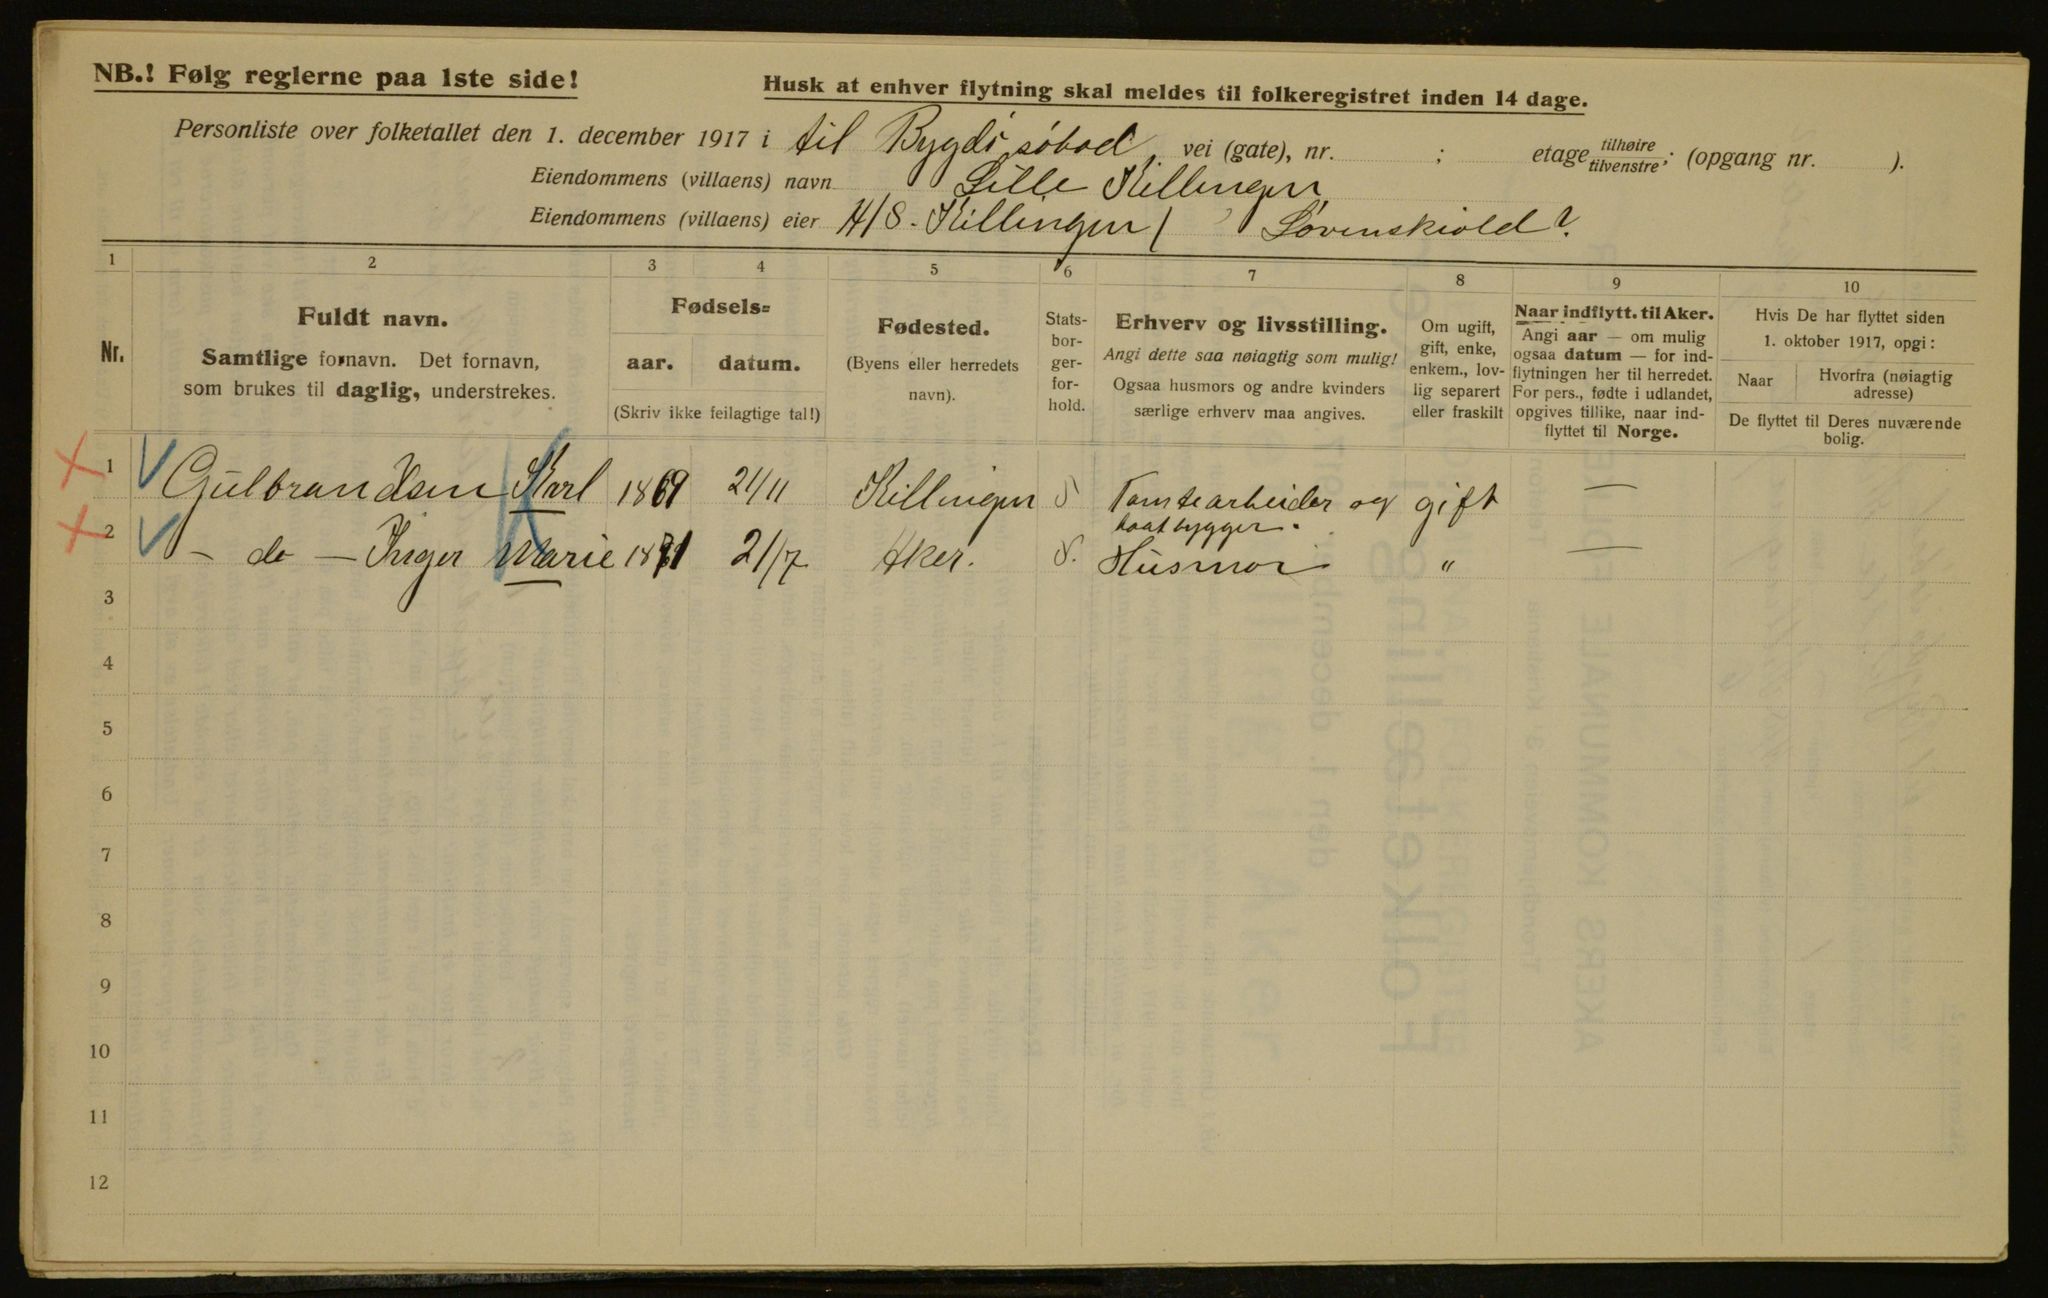 NB.! Følg reglerne paa 1ste side!
Husk at enhver flytning skal meldes til folkeregistret inden 14 dage.
Personliste over folketallet den 1. december 1917 i til Bygdö söbad vei (gate), nr. ; etage tilhøire tilvenstre; (opgang nr. ).
Eiendommens (villaens) navn Lille Killingen
Eiendommens (villaens) eier A/S. Killingen / Lövenskiold?
1 2 3 4 5 6 7 8 9 10
Nr.
Fuldt navn.
Samtlige fornavn. Det fornavn,
som brukes til daglig, understrekes.
Fødsels=
aar. datum.
(Skriv ikke feilagtige tal!)
Fødested.
(Byens eller herredets
navn).
Stats-
bor-
ger-
for-
hold.
Erhverv og livsstilling.
Angi dette saa nøiagtig som mulig!
Ogsaa husmors og andre kvinders
særlige erhverv maa angives.
Om ugift,
gift, enke,
enkem., lov-
lig separert
eller fraskilt
Naar indflytt. til Aker.
Angi aar — om mulig
ogsaa datum — for ind-
flytningen her til herredet.
For pers., fødte i udlandet,
opgives tillike, naar ind-
flyttet til Norge.
Hvis De har flyttet siden
1. oktober 1917, opgi:
Naar Hvorfra (nøiagtig
adresse)
De flyttet til Deres nuværende
bolig.
1 Gulbrandsen Karl 1869 24/11 Killingen S Tomtearbeider og gift —
baatbygger.
2 - do - Inger Marie 1871 21/7 Aker. S. Husmor " —
3
4
5
6
7
8
9
10
11
12